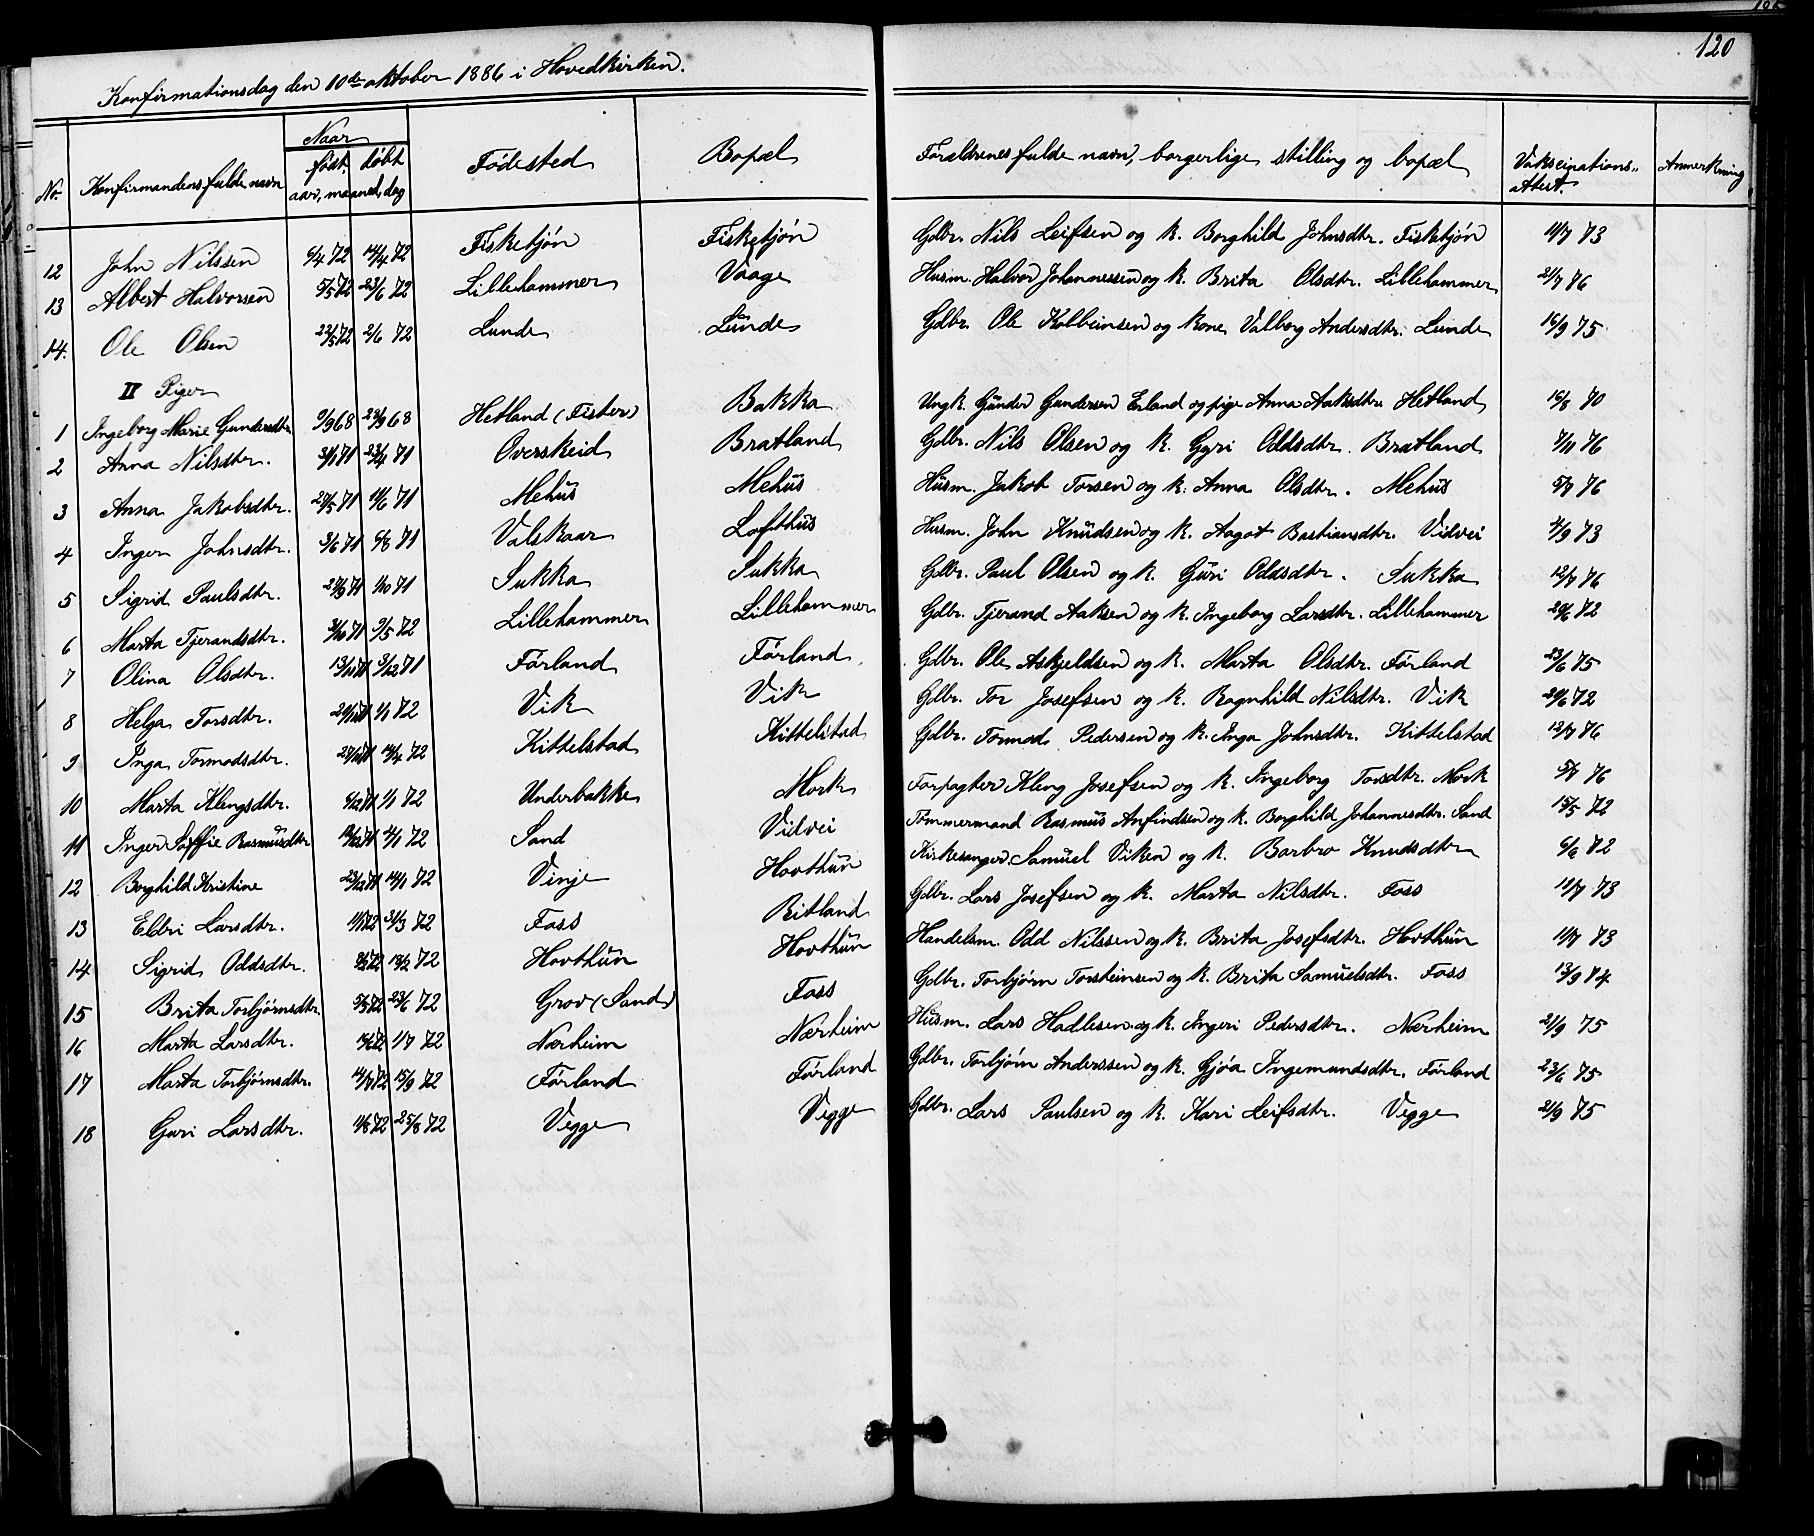 120
Konfirmationsdag den 10de oktober 1886 i Hovedkirken.
No. Konfirmandens fulde navn Naar født, døbt aar, maaned, dag Födested Bopæl Forældrenes fulde navn, borgerlige stilling og bopæl Vakscinations- attest. Anmerkning
12 John Nilssen 6/4 72 14/4 72 Fisketjön Fisketjön Gdbr. Nils Leifsen og k. Borghild Johnsdtr. Fisketjön 11/7 73
13 Albert Halvorsen 5/5 72 23/6 72 Lillehammer Vaage Husm. Halvor Johannessen og k. Brita Olsdtr. Lillehammer 21/7 76
14. Ole Olsen 22/5 72 2/6 72 Lunde Lunde Gdbr. Ole Kolbeinsen og kone Valborg Andersdtr. Lunde 16/9 75
II Piger
1 Ingeborg Marie Gundersdtr. 9/9 68 28/9 68 Hetland (Fister) Bakka Ungk. Gunder Gundersen Erland og pige Anna Aaksdtr. Hetland 16/8 70
2 Anna Nilsdtr. 31/1 71 23/4 71 Overskeid Bratland Gdbr. Nils Olsen og k. Gyri Oddsdtr. Bratland 7/11 76
3 Anna Jakobsdtr. 29/5 71 11/6 71 Mehus Mehus Husm. Jakob Torsen og k. Anna Olsdtr. Mehus 5/7 76
4 Inger Johnsdtr. 3/6 71 6/8 71 Valskaar Lofthus Husm. John Knudsen og k. Aagot Bastiansdtr. Vidvei 4/9 73
5 Sigrid Paulsdtr. 24/9 71 1/10 71 Sukka Sukka Gdbr. Paul Olsen og k. Guri Oddsdtr. Sukka 12/7 76
6 Marta Tjerandsdtr. 3/10 71 9/5 72 Lillehammer Lillehammer Gdbr. Tjerand Aaksen og k. Ingeborg Larsdtr. Lillehammer 20/6 72
7 Olina Olsdtr. 13/11 71 3/12 71 Förland Förland Gdbr. Ole Askjeldsen og k. Marta Olsdtr. Förland 23/6 75
8 Helga Torsdtr. 24/12 71 1/1 72 Vik Vik Gdbr. Tor Josefsen og k. Ragnhild Nilsdtr. Vik 20/6 72
9 Inga Tormodsdtr. 14/4 72 Kittelstad Kittelstad Gdbr. Tormod Pedersen og k. Inga Johnsdtr. Kittelstad 12/7 76
10 Marta Klengsdtr. 6/12 71 1/1 72 Underbakke Mork Forpagter Kleng Josefsen og k. Ingeborg Torsdtr. Mork 5/7 76
11 Inger Soffie Rasmusdtr 1/1 72 Sand Vidvei Tömmermand Rasmus Anfindsen og k. Borghild Johannesdtr. Sand 15/5 72
12 Borghild Kristine 23/12 71 14/1 72 Vinje Hovthun Kirkesanger Samuel Viken og k. Barbro Knudsdtr 6/6 72
13 Eldri Larsdtr. 1/1 72 31/3 72 Foss Ritland Gdbr. Lars Josefsen og k. Marta Nilsdtr. Foss 11/7 73
14 Sigrid Oddsdtr. 18/2 72 Hovthun Hovthun Handelsm. Odd Nilssen og k. Brita Josefsdtr. Hovthun 11/7 73
15 Brita Torbjörnsdtr. 23/6 72 Grov (Sand) Foss Gdbr. Torbjörn Torsteinsen og k. Brita Samuelsdtr. Foss 13/9 74
16 Marta Larsdtr. 1/7 72 Nærheim Nærheim Husm. Lars Hadlesen og k. Ingeri Pedersdtr. Nærheim 21/9 75
17 Marta Torbjörnsdtr. 14/7 72 15/9 72 Förland Förland Gdbr. Torbjörn Anderssen og k. Gjöa Ingemundsdtr. Förland 23/6 75
18 Guri Larsdtr. 4/8 72 25/8 72 Vegge Vegge Gdbr. Lars Paulsen og k. Kari Leifsdtr. Vegge 21/9 75